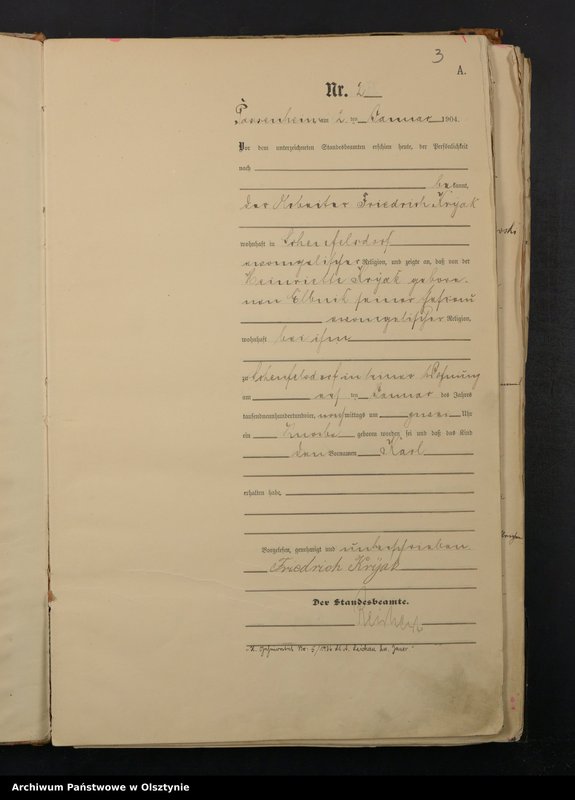 3
A.
Nr. 2
Passenheim am 2 ten Januar 1904.
Vor dem unterzeichneten Standesbeamten erschien heute, der Persönlichkeit
nach
be kannt,
der Arbeiter Friedrich Kryak
wohnhaft in
evangelischer Religion, und zeigte an, daß von der
Henriette Kryak gebore-
nen seiner Ehefrau
evangelischer Religion,
wohnhaft bei ihm
zu in seiner Wohnung
am ten Januar des Jahres
tausendneunhundertundvier, mittags um Uhr
ein Knabe geboren worden sei und daß das Kind
den Vornamen Karl
erhalten habe.
Vorgelesen, genehmigt und unterschrieben
Friedrich Kryak
Der Standesbeamte.
Archiwum Państwowe w Olsztynie